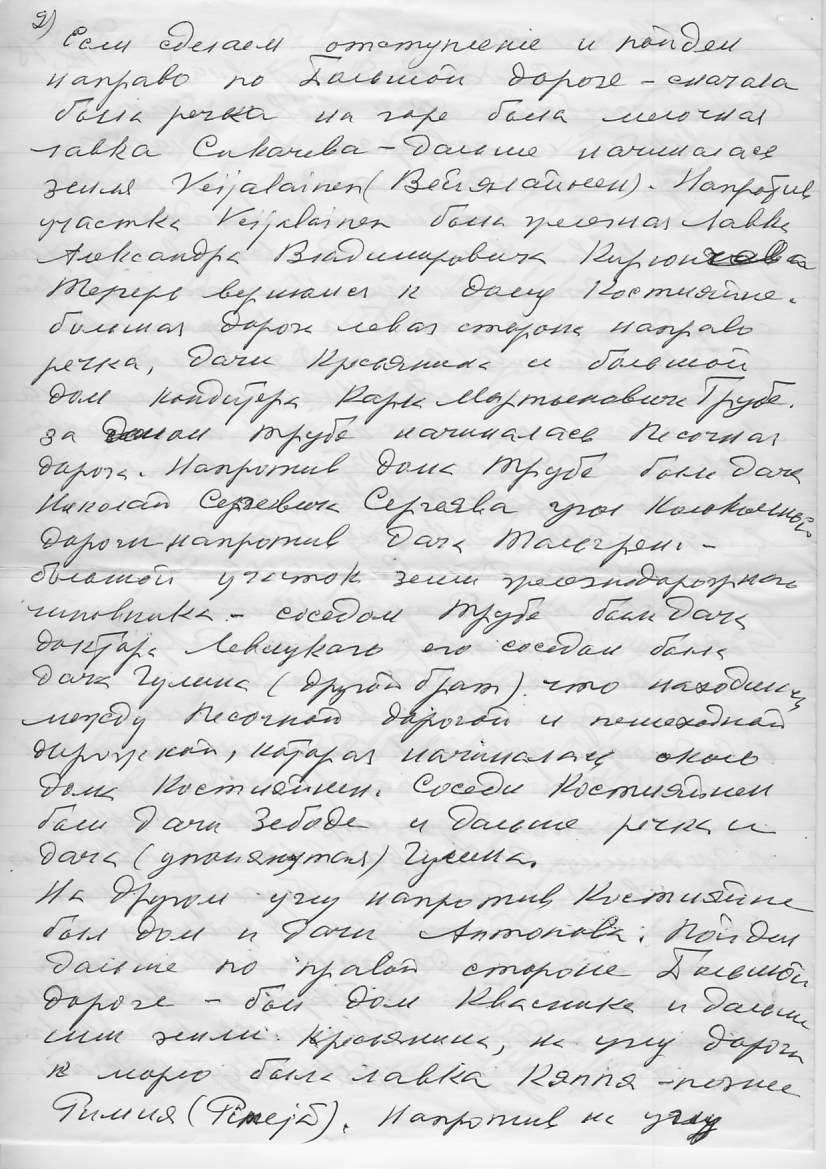 2)
Если сделаем отступление и пойдем
направо по Большой дороге – сначала
была речка на горе была мелочная
лавка Сикачева – Дальше начиналась
земля Veijalainen (Вейялайнен). Напротив
участка Veijalainen была железная лавка
Александра Владимировича
Теперь вернемся к дому Костияйне.
большая дорога левая сторона направо
речка, Дачи Кресьянина и большой
дом кондитера Карла Мартыновича Трубе.
за домом Трубе начиналась Песочная
дорога. Напротив дома Трубе были Дача
Николай Сергеевича Сергеева угол Колокольной
дороги напротив Дача Тальгрен. –
большой участок земли железнодорожного
чиновника – соседом Трубе были Дача
доктора Левицкого его соседом была
Дача Гулина (другой брат) что находилась
между Песочной дорогой и пешеходной
дорожкой, которая начиналась около
дома Костияйнен. Соседи Костияйнен
были Дачи Зебоде и Дальше речка и
Дача (упомянутая) Гулина.
На другом углу напротив Костияйне
был дом и Дачи Антонова. Пойдем
Дальше по правой стороне Большой
дороге – был дом Квасника и Дальше
шли земли Кресьянина, на углу дороги
к морю была лавка Кяппя – позже
Римпя ( ). Напротив на углу